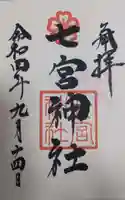 奉拝
七宮神社
令和四年九月十四日